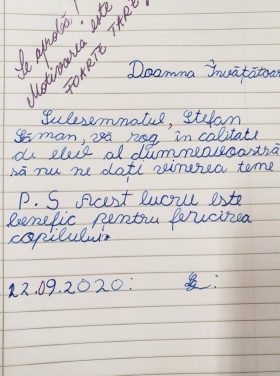 Se aprobă!
Motivarea este
FOARTE TARE
Doamna Învățătoar
Subsemnatul, Ștefan
Șaman, vă rog, în calitate
de elev al dumneavoastră
să nu ne dați vinerea teme
P.S Acest lucru este
benefic pentru fericirea
copilului.
22.09.2020: